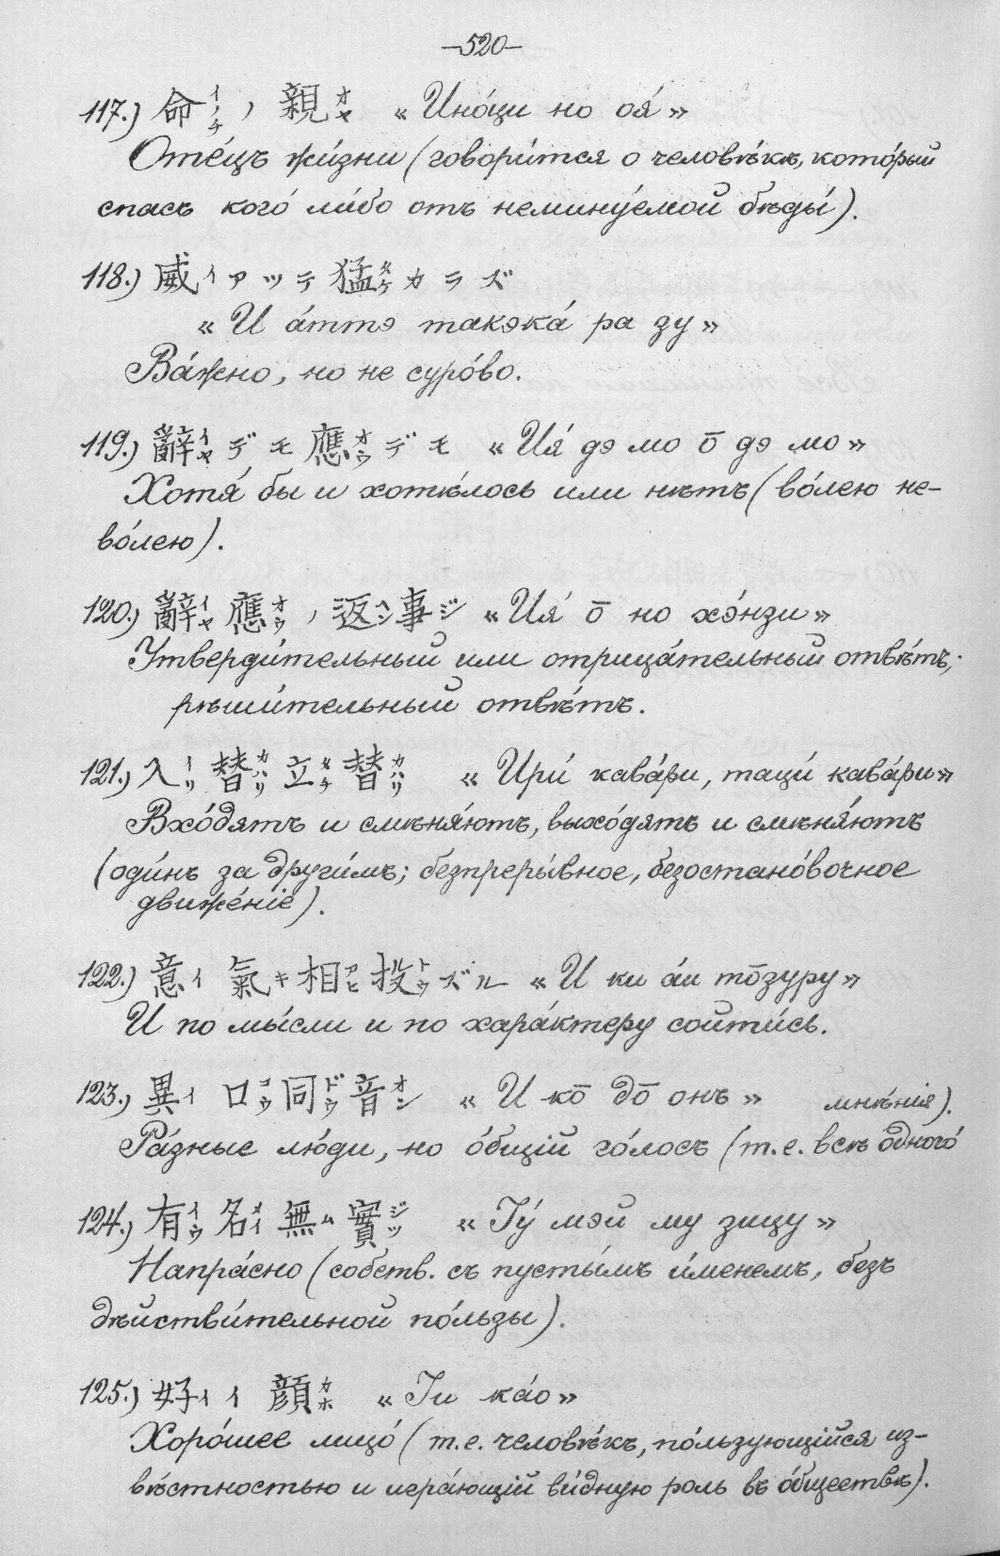 —520—
117.) 命イノチノ親オヤ «Ино́ци но оя́»
Оте́цъ жи́зни (говори́тся о человѣ́кѣ, кото́рый
спасъ кого́ ли́бо отъ немину́емой бѣды́).
118.) 威イアッテ猛タケカラズ
«И а́ттэ такэка́ ра зу»
Ва́жно, но не суро́во.
119.) 辭イヤデモ應オウデモ «Ия́ дэ мо о̄ дэ мо»
Хотя́ бы и хотѣ́лось или нѣтъ (во́лею не-
во́лею).
120.) 辭イヤ應オウノ返ヘン事ジ «Ия́ о̄ но хэ́нзи»
Утверди́тельный или отрица́тельный отвѣ́тъ;
рѣши́тельный отвѣ́тъ.
121.) 入イリ替カハリ立タチ替カハリ «Ири́ кава́ри, таци́ кава́ри»
Вхо́дятъ и смѣня́ютъ, выхо́дятъ и смѣня́ютъ
(оди́нъ за други́мъ; безпреры́вное, безостано́вочное
движе́ніе).
122.) 意イ氣キ相アヒ投トウズル «И ки а́и то̄зуру»
И по мы́сли и по хара́ктеру сойти́сь.
123.) 異イ口コウ同ドウ音オン «И ко̄ до̄ онъ»
Ра́зные лю́ди, но о́бщій го́лосъ (т.е. всѣ одного́
мнѣ́нія).
124.) 有イウ名メイ無ム實ジツ «Іу́ мэй му зицу»
Напра́сно (собств. съ пусты́мъ и́менемъ, безъ
дѣйстви́тельной по́льзы).
125.) 好イイ顔カホ «Іи ка́о»
Хоро́шее лицо́ (т.е. человѣ́къ, по́льзующійся из-
вѣ́стностью и игра́ющій ви́дную роль въ о́бществѣ).